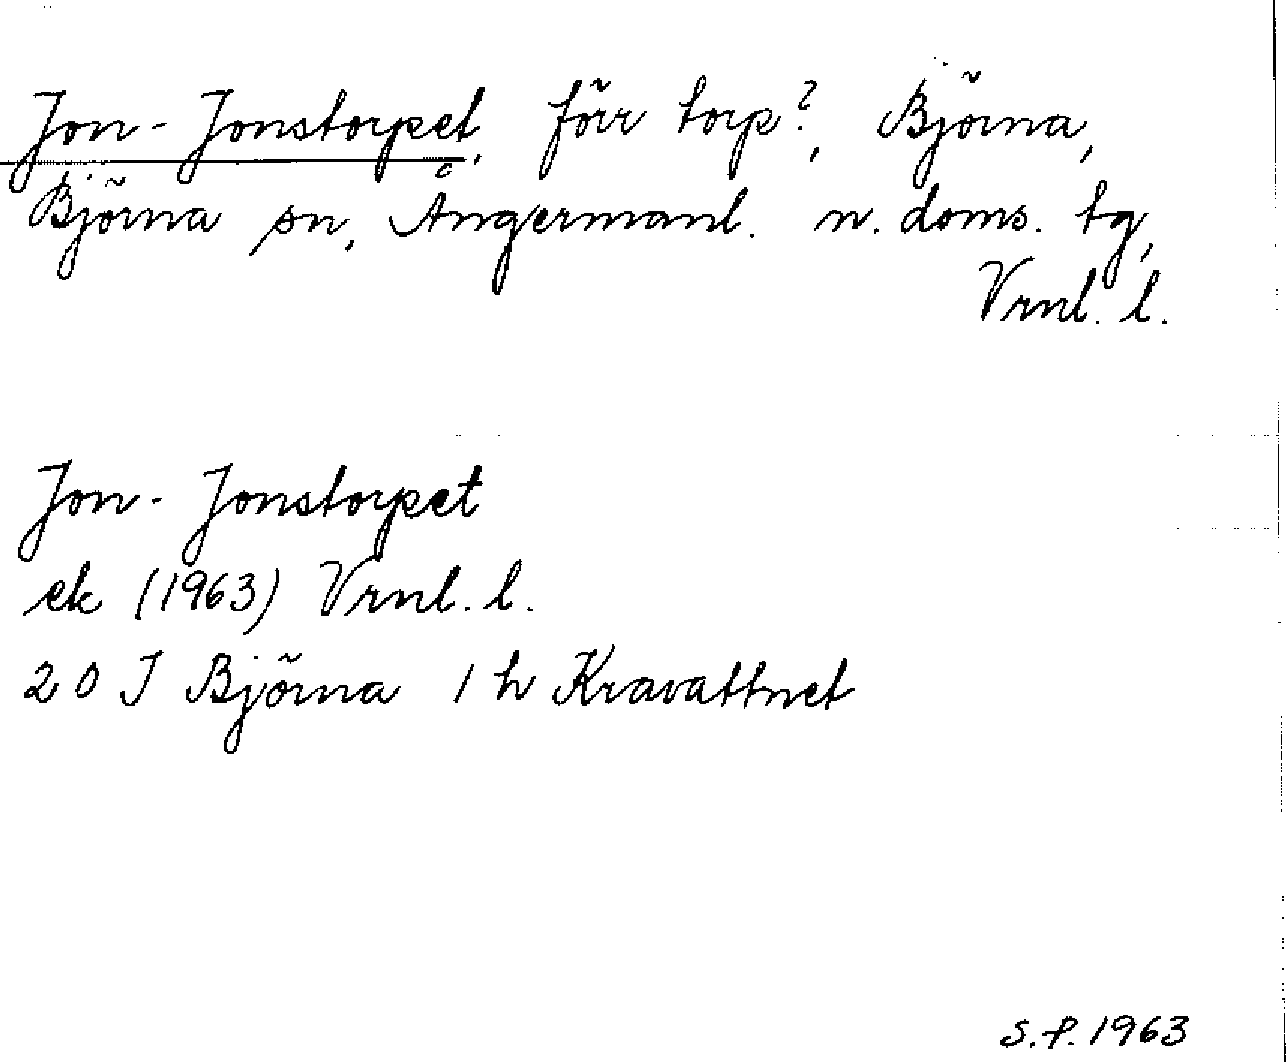 Jon-Jonstorpet, förr torp?, Björna,
Björna sn, Ångermanl. n. doms. tg,
Vrnl. l.
Jon-Jonstorpet
ek (1963) Vrnl. l.
20 J Björna 1 h Kravattnet
S.P. 1963